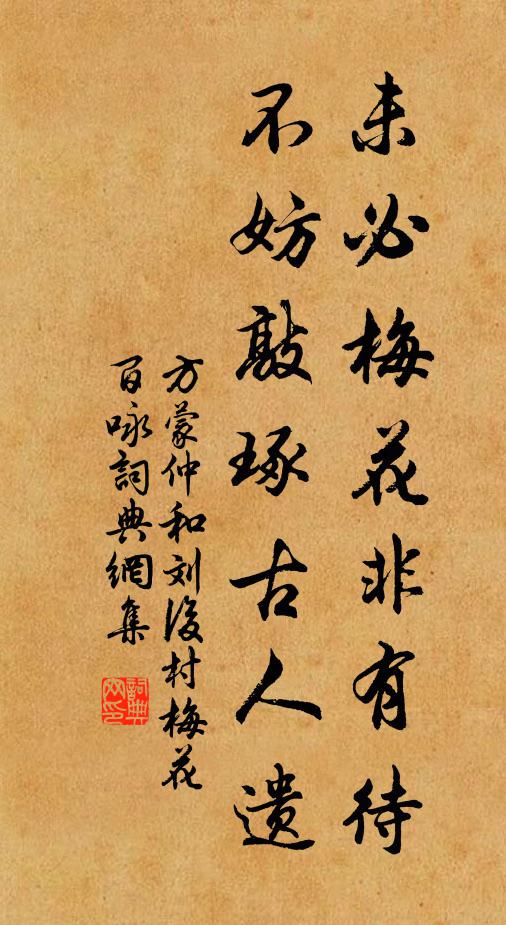 未必梅花非有待
不妨敲琢古人遗
方蒙仲和刘後村梅花
百咏詞典網集
詞典
网印